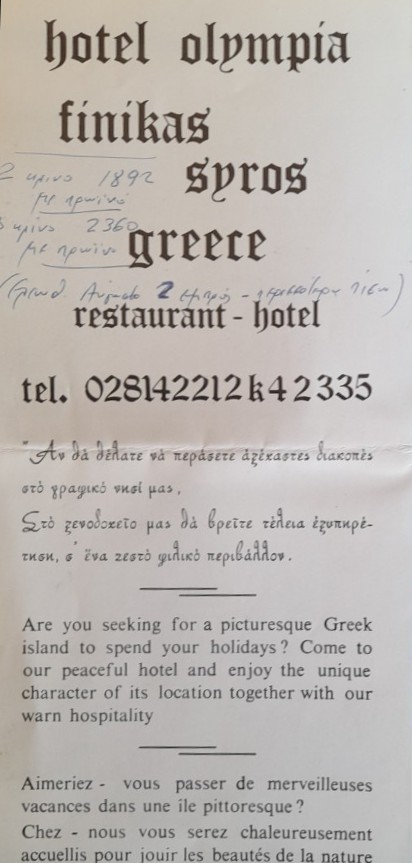 hotel olympia
finikas
2 κρινο 1892
syros
με πρωινό
κρίνο 2360
greece
με πρωινο
2
restaurant - hotel
tel. 028142212 k 42335
"Αν θά θέλατε νά περάσετε ἀξέχαστες διακοπές
στό γραφικό νησί μας,
Στό ξενοδοχεῖο μας θά βρεῖτε τέλεια ἐξυπηρέ-
τηση, σ' ἕνα ζεστό φιλικό περιβάλλον.
Are you seeking for a picturesque Greek
island to spend your holidays? Come to
our peaceful hotel and enjoy the unique
character of its location together with our
warn hospitality
Aimeriez - vous passer de merveilleuses
vacances dans une île pittoresque?
Chez - nous vous serez chaleureusement
accuellis pour jouir les beautés de la nature